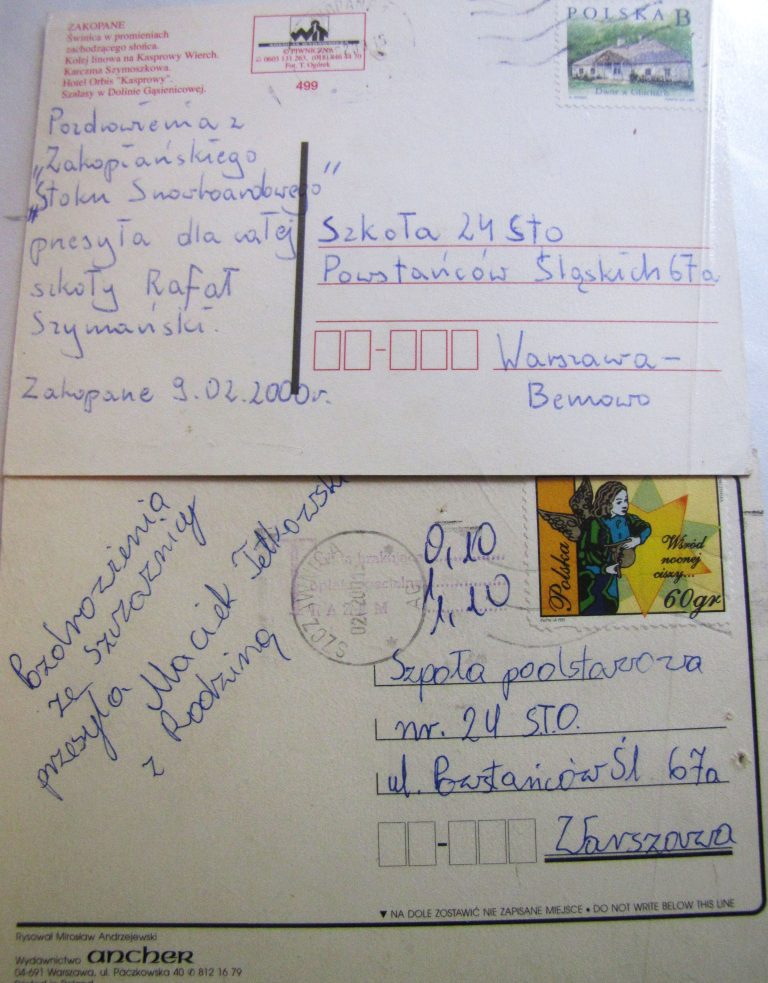 ZAKOPANE
Świnica w promieniach
zachodzącego słońca.
Kolej linowa na Kasprowy Wierch.
Karczma Szymoszkowa.
Hotel Orbis "Kasprowy".
Szałasy w Dolinie Gąsienicowej.
© PIWNICZNA
Fot. T. Ogórek
499
POLSKA B
Dwór w
Pozdrowienia z
„Zakopiańskiego
„Stoku Snowboardowego”
przesyła dla całej
szkoły Rafał
Szymański.
Zakopane 9.02.2000r.
Szkoła 24 Sto
Powstańców Śląskich 67a
Warszawa-
Bemowo
Pzdrozienia
ze Szczaznicy
przesyła Maciek
z Rodziną
0,10
1,10
1,10
Polska
Wśród
nocnej
ciszy...
60gr
Szpoła podstazoza
nr. 24 STO.
ul. Pzstańcóz Śl 67a
Zarszaza
▼ NA DOLE ZOSTAWIĆ NIE ZAPISANE MIEJSCE • DO NOT WRITE BELOW THIS LINE
Rysował Mirosław Andrzejewski
Wydawnictwo ancher
04-691 Warszawa, ul. Paczkowska 40 ✆ 812 16 79